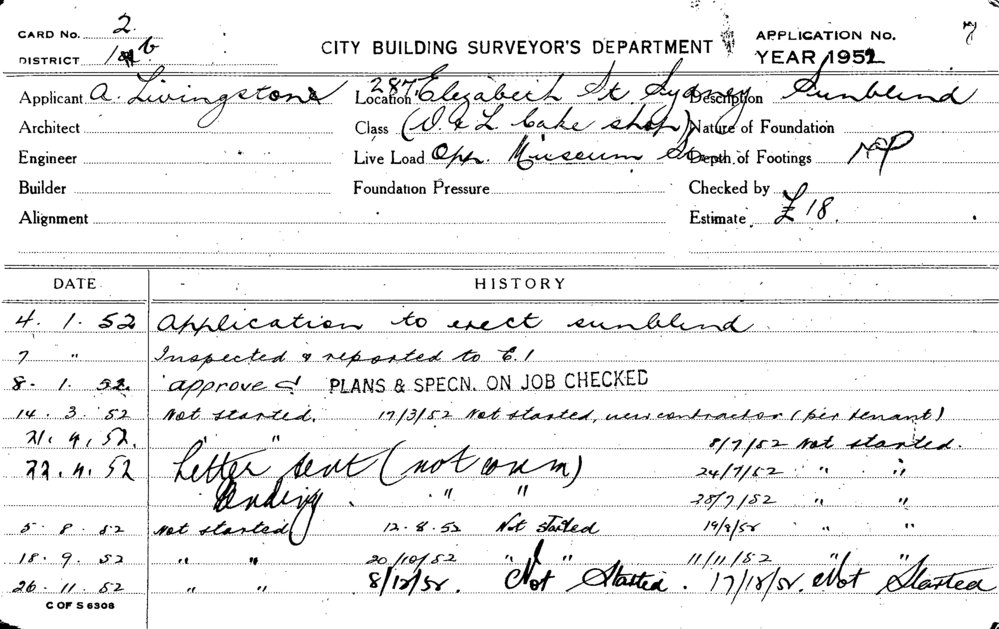 CARD No. 2.
DISTRICT 1 b
CITY BUILDING SURVEYOR'S DEPARTMENT
APPLICATION No. 7
YEAR 1952
Applicant A. Livingstone Location 287. Elizabeth St Sydney Description Sunblind
Architect Class (D. & L. Cake shop) Nature of Foundation
Engineer Live Load Opp. Museum Stn Depth of Footings
Builder Foundation Pressure Checked by
Alignment Estimate £18.
DATE HISTORY
4. 1. 52 Application to erect sunblind
7 " Inspected & reported to E.1
8. 1. 52. approved PLANS & SPECN. ON JOB CHECKED
14. 3. 52 Not started. 17/3/52 Not started, new contractor (per tenant)
21. 4. 52. " " 8/7/52 Not started.
22. 4. 52 Letter sent (not comm) 24/7/52 " "
" " 28/7/52 " "
5. 8. 52 Not started 12. 8. 52 Not started 19/8/52 " "
18. 9. 52 " " 20/10/52 " " 11/11/52 " "
26. 11. 52 " " 8/12/52. Not Started. 17/12/52. Not Started
C OF S 6308